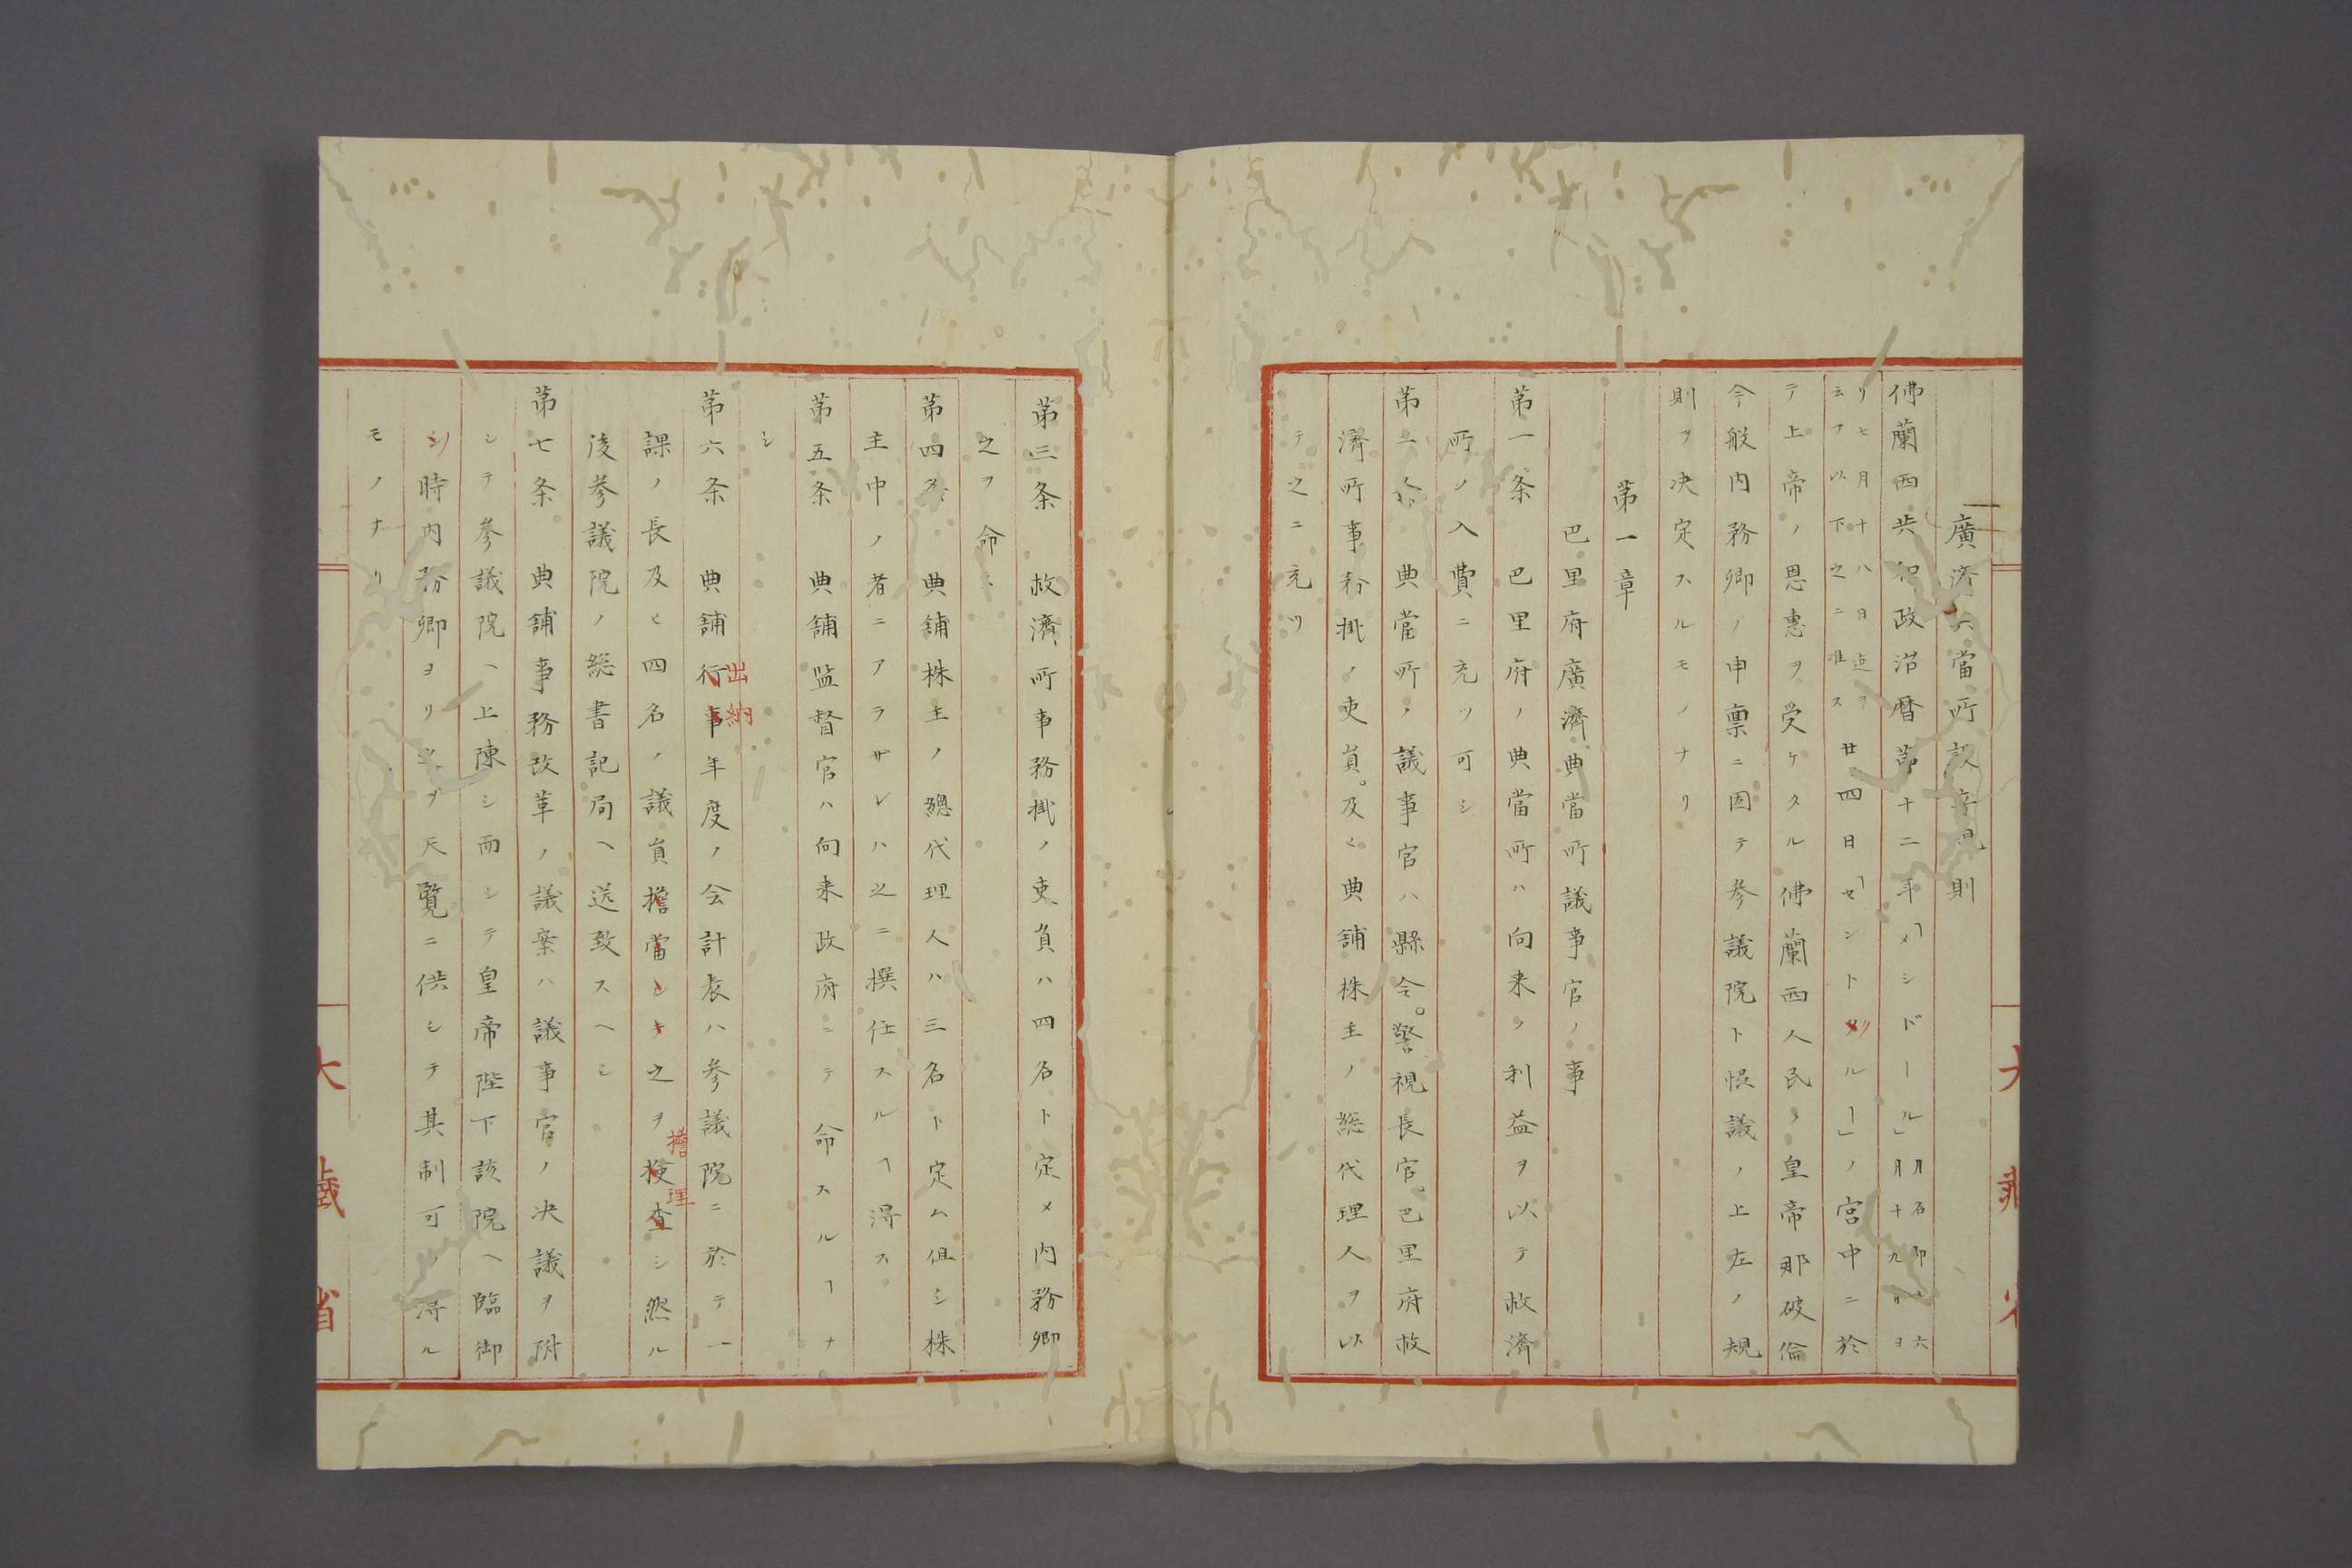 廣濟典當所設立規則
佛蘭西共和政治暦第十二年「メシドール」月
月名即六
リ七月十八日迄ヲ
月十九日ヲ
云フ以下之ニ准ス
廿四日「セントクルー」ノ宮中ニ於
テ上帝ノ恩惠ヲ受ケタル佛蘭西人民ノ皇帝那破倫
今般内務卿ノ申稟ニ因テ參議院ト恨議ノ上左ノ規
則ヲ决定スルモノナリ
第一章
巴里府廣濟典當所議事官ノ事
第一条 巴里府ノ典當所ハ向来ノ利益ヲ以テ救濟
所ノ入費ニ充ツ可シ
第二条 典當所ノ議事官ハ縣令。警視長官。巴里府救
濟所事務掛ノ吏員。及ヒ典舗株主ノ総代理人ヲ以
テ之ニ充ツ
第三条 救濟所事務掛ノ吏員ハ四名ト定メ内務卿
之ヲ命ス
第四条 典舗株主ノ總代理人ハ三名ト定ム但シ株
主中ノ者ニアラザレハ之ニ撰任スルヿ得ス
第五条 典舗監督官ハ向来政府ニテ命スルヿナ
シ
第六条 典舗行事年度ノ会計表ハ參議院ニ於テ一
出納
課ノ長及ヒ四名ノ議員擔當シキ之ヲ検査シ然ル
擔理
後參議院ノ総書記局ヘ送致スヘシ
第七条 典舗事務改革ノ議案ハ議事官ノ决議ヲ附
シテ參議院ヘ上陳シ而シテ皇帝陛下該院ヘ臨御
シ時内務卿ヨリ之ヲ天覧ニ供シテ其制可ヲ得ル
モノナリ
大藏省
大藏省